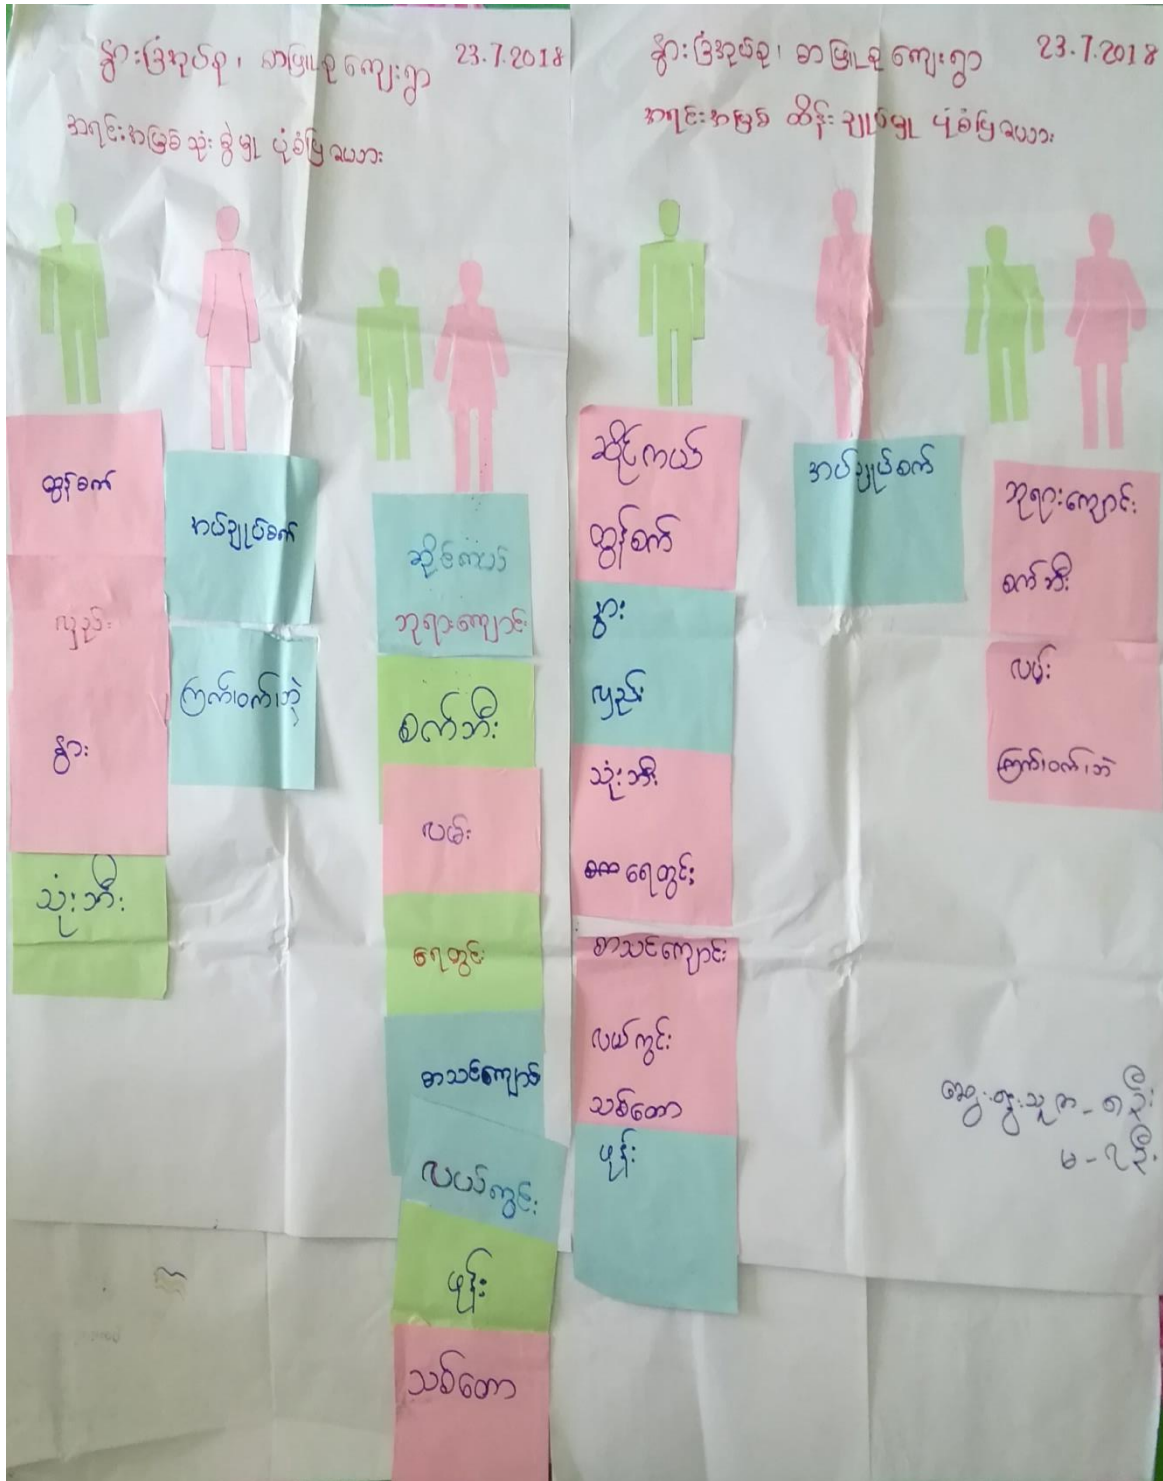 နွားခြံအုပ်စု၊ စာဖြူစုကျေးရွာ 23.7.2018
အရင်းအမြစ် သုံးစွဲမှု ပုံစံပြဇယား
ထွန်စက်
လှည်း
နွား
သုံးဘီး
အပ်ချုပ်စက်
ကြက်၊ဝက်၊ဘဲ
ဆိုင်ကယ်
ဘုရားကျောင်း
စက်ဘီး
လမ်း
ရေတွင်း
စာသင်ကျောင်း
လယ်ကွင်း
ဖုန်း
သစ်တော
နွားခြံအုပ်စု၊ စာဖြူစုကျေးရွာ 23.7.2018
အရင်းအမြစ် ထိန်းချုပ်မှု ပုံစံပြဇယား
ဆိုင်ကယ်
ထွန်စက်
နွား
လှည်း
သုံးဘီး
ရေတွင်း
စာသင်ကျောင်း
လယ်ကွင်း
သစ်တော
ဖုန်း
အပ်ချုပ်စက်
ဘုရားကျောင်း
စက်ဘီး
လမ်း
ကြက်၊ဝက်၊ဘဲ
ဆွေးနွေးသူ ကျ - ၈ ဦး
မ - ၇ ဦး